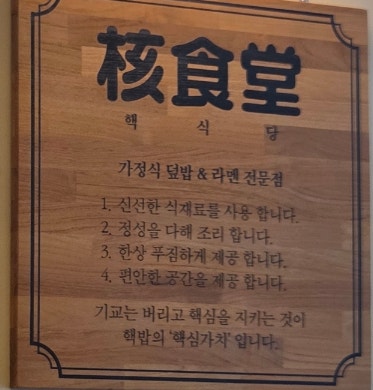 核食堂
핵 식 당
가정식 덮밥 & 라멘 전문점
1. 신선한 식재료를 사용 합니다.
2. 정성을 다해 조리 합니다.
3. 한상 푸짐하게 제공 합니다.
4. 편안한 공간을 제공 합니다.
기교는 버리고 핵심을 지키는 것이
핵밥의 '핵심가치' 입니다.